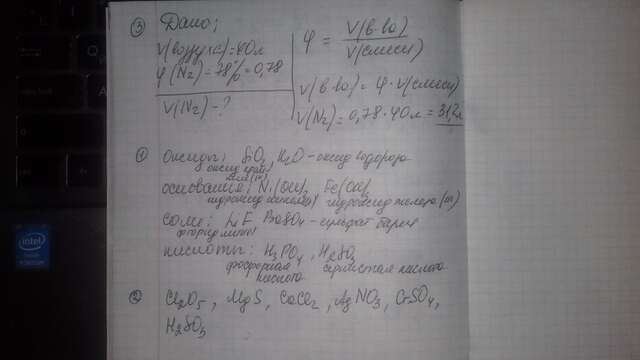 ③ Дано:
V(воздуха)=40л
φ(N₂)=78%=0,78
V(N₂)-?
φ = V(в-ва)
V(смеси)
V(в-ва)= φ·V(смеси)
V(N₂)=0,78·40л=31,2л
① оксиды: SiO₂, H₂O-оксид водорода
оксид
основания: Ni(OH)₂, Fe(OH)₃
гидроксид гидроксид железа (III)
соли: LiF BaSO₄-сульфат бария
фторид лития
кислоты: H₃PO₄, H₂SO₃
фосфорная сернистая кислота
кислота
② Cl₂O₅, MgS, CaCl₂, AgNO₃, CrSO₄,
H₂SO₃
intel